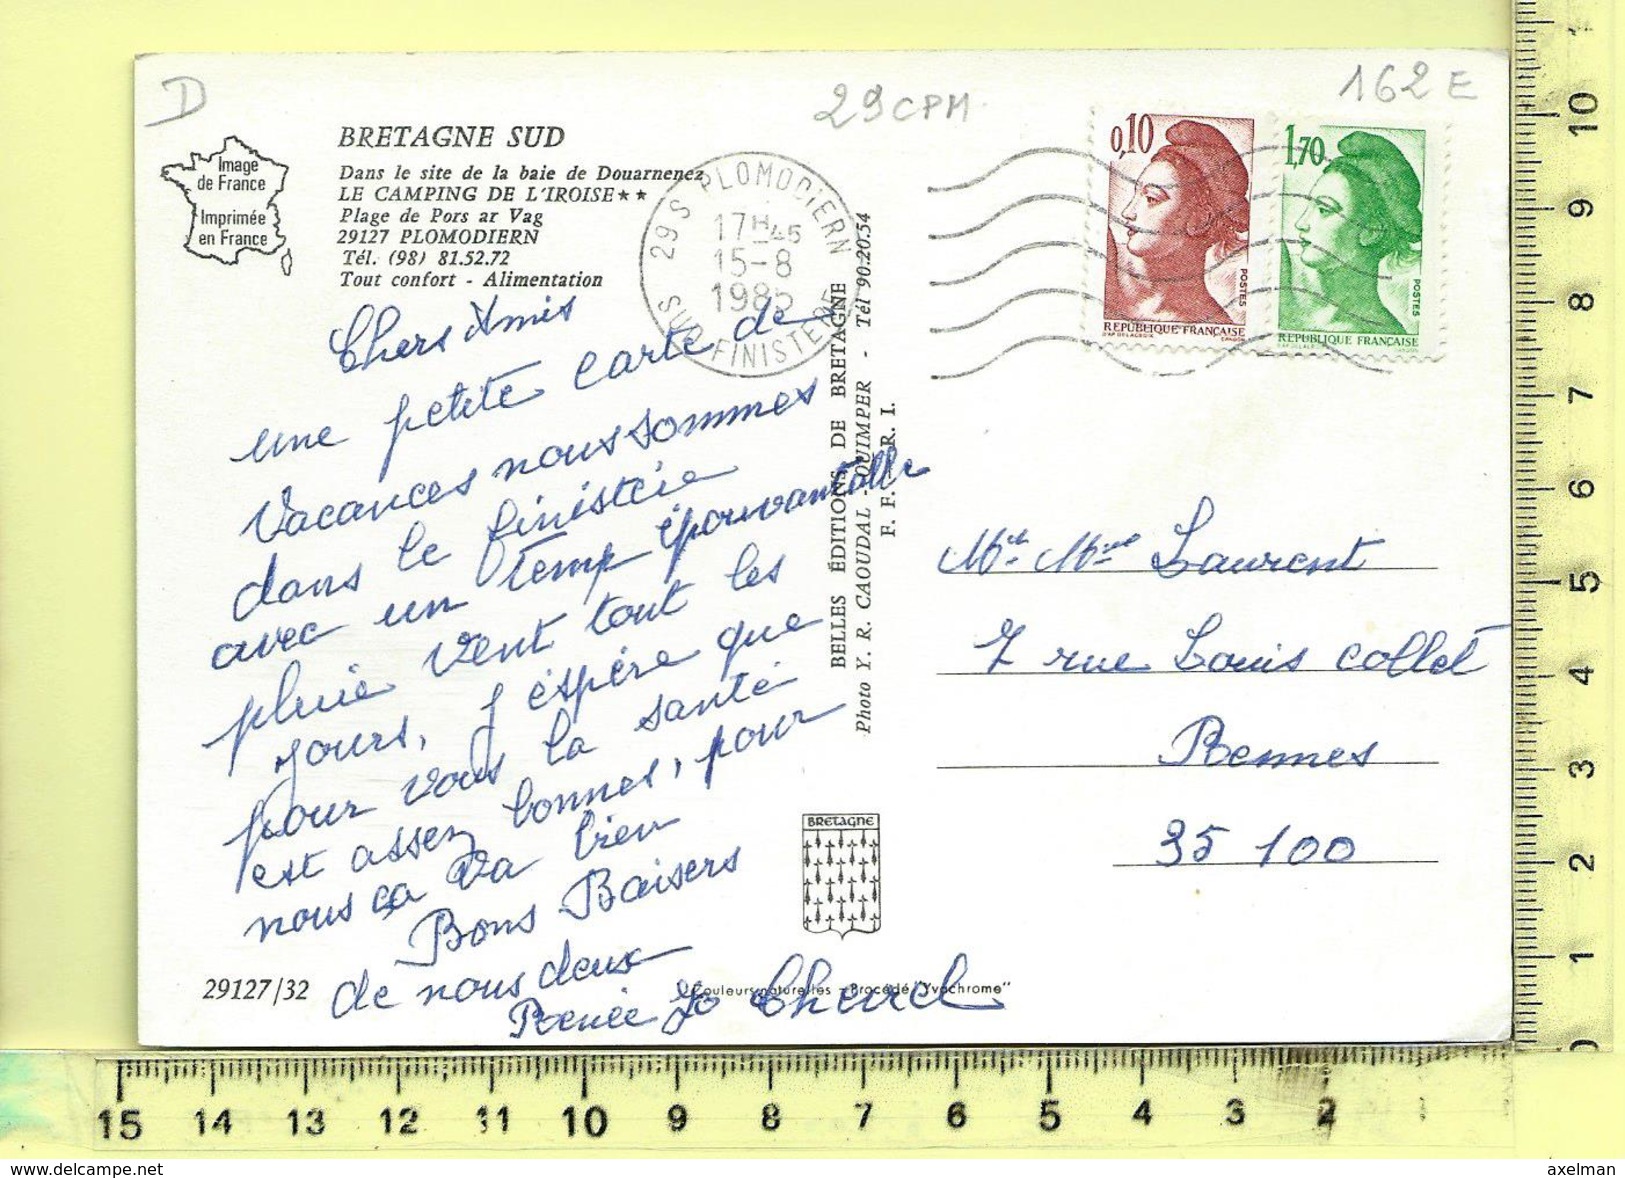 D
29 CPM
162 E
Image
de France
Imprimée
en France
BRETAGNE SUD
Dans le site de la baie de Douarnenez
LE CAMPING DE L'IROISE★★
Plage de Pors ar Vag
29127 PLOMODIERN
Tél. (98) 81.52.72
Tout confort - Alimentation
29 S PLOMODIERN
17H45
15-8
1985
SUD FINISTERE
0,10
POSTES
REPUBLIQUE FRANÇAISE
1,70
POSTES
REPUBLIQUE FRANÇAISE
Chers Amis
une petite carte de
Vacances nous sommes
dans le finistère
avec un temp épouvantable
pluie vent tout les
jours, j éspère que
pour vous la santé
est assez bonnes, pour
nous ça va bien
Bons Baisers
de nous deux
Renée Jo
BELLES ÉDITIONS DE BRETAGNE
Photo Y. R. CAOUDAL - QUIMPER - Tél 90.20.54
F. F. R. I.
Mr Mme Laurent
7 rue Louis collet
Rennes
35 100
BRETAGNE
29127/32
Couleurs naturelles - Procédé "Yvochrome"
10
9
8
7
6
5
4
3
2
1
15 14 13 12 11 10 9 8 7 6 5 4 3 2 1
www.delcampe.net
axelman